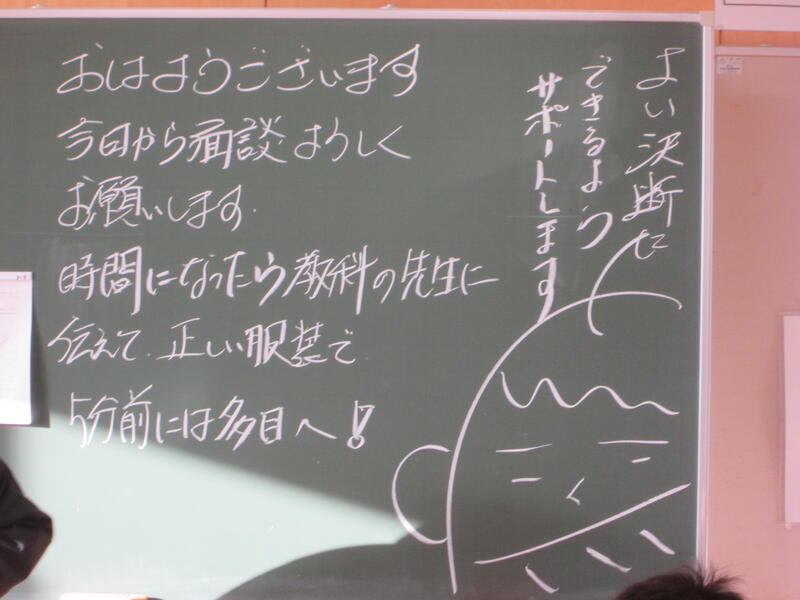 おはようございます
今日から面談よろしく
お願いします.
時間になったら教科の先生に
伝えて.正しい服装で
5分前には多目へ!
よい決断に
できるよう
サポートします